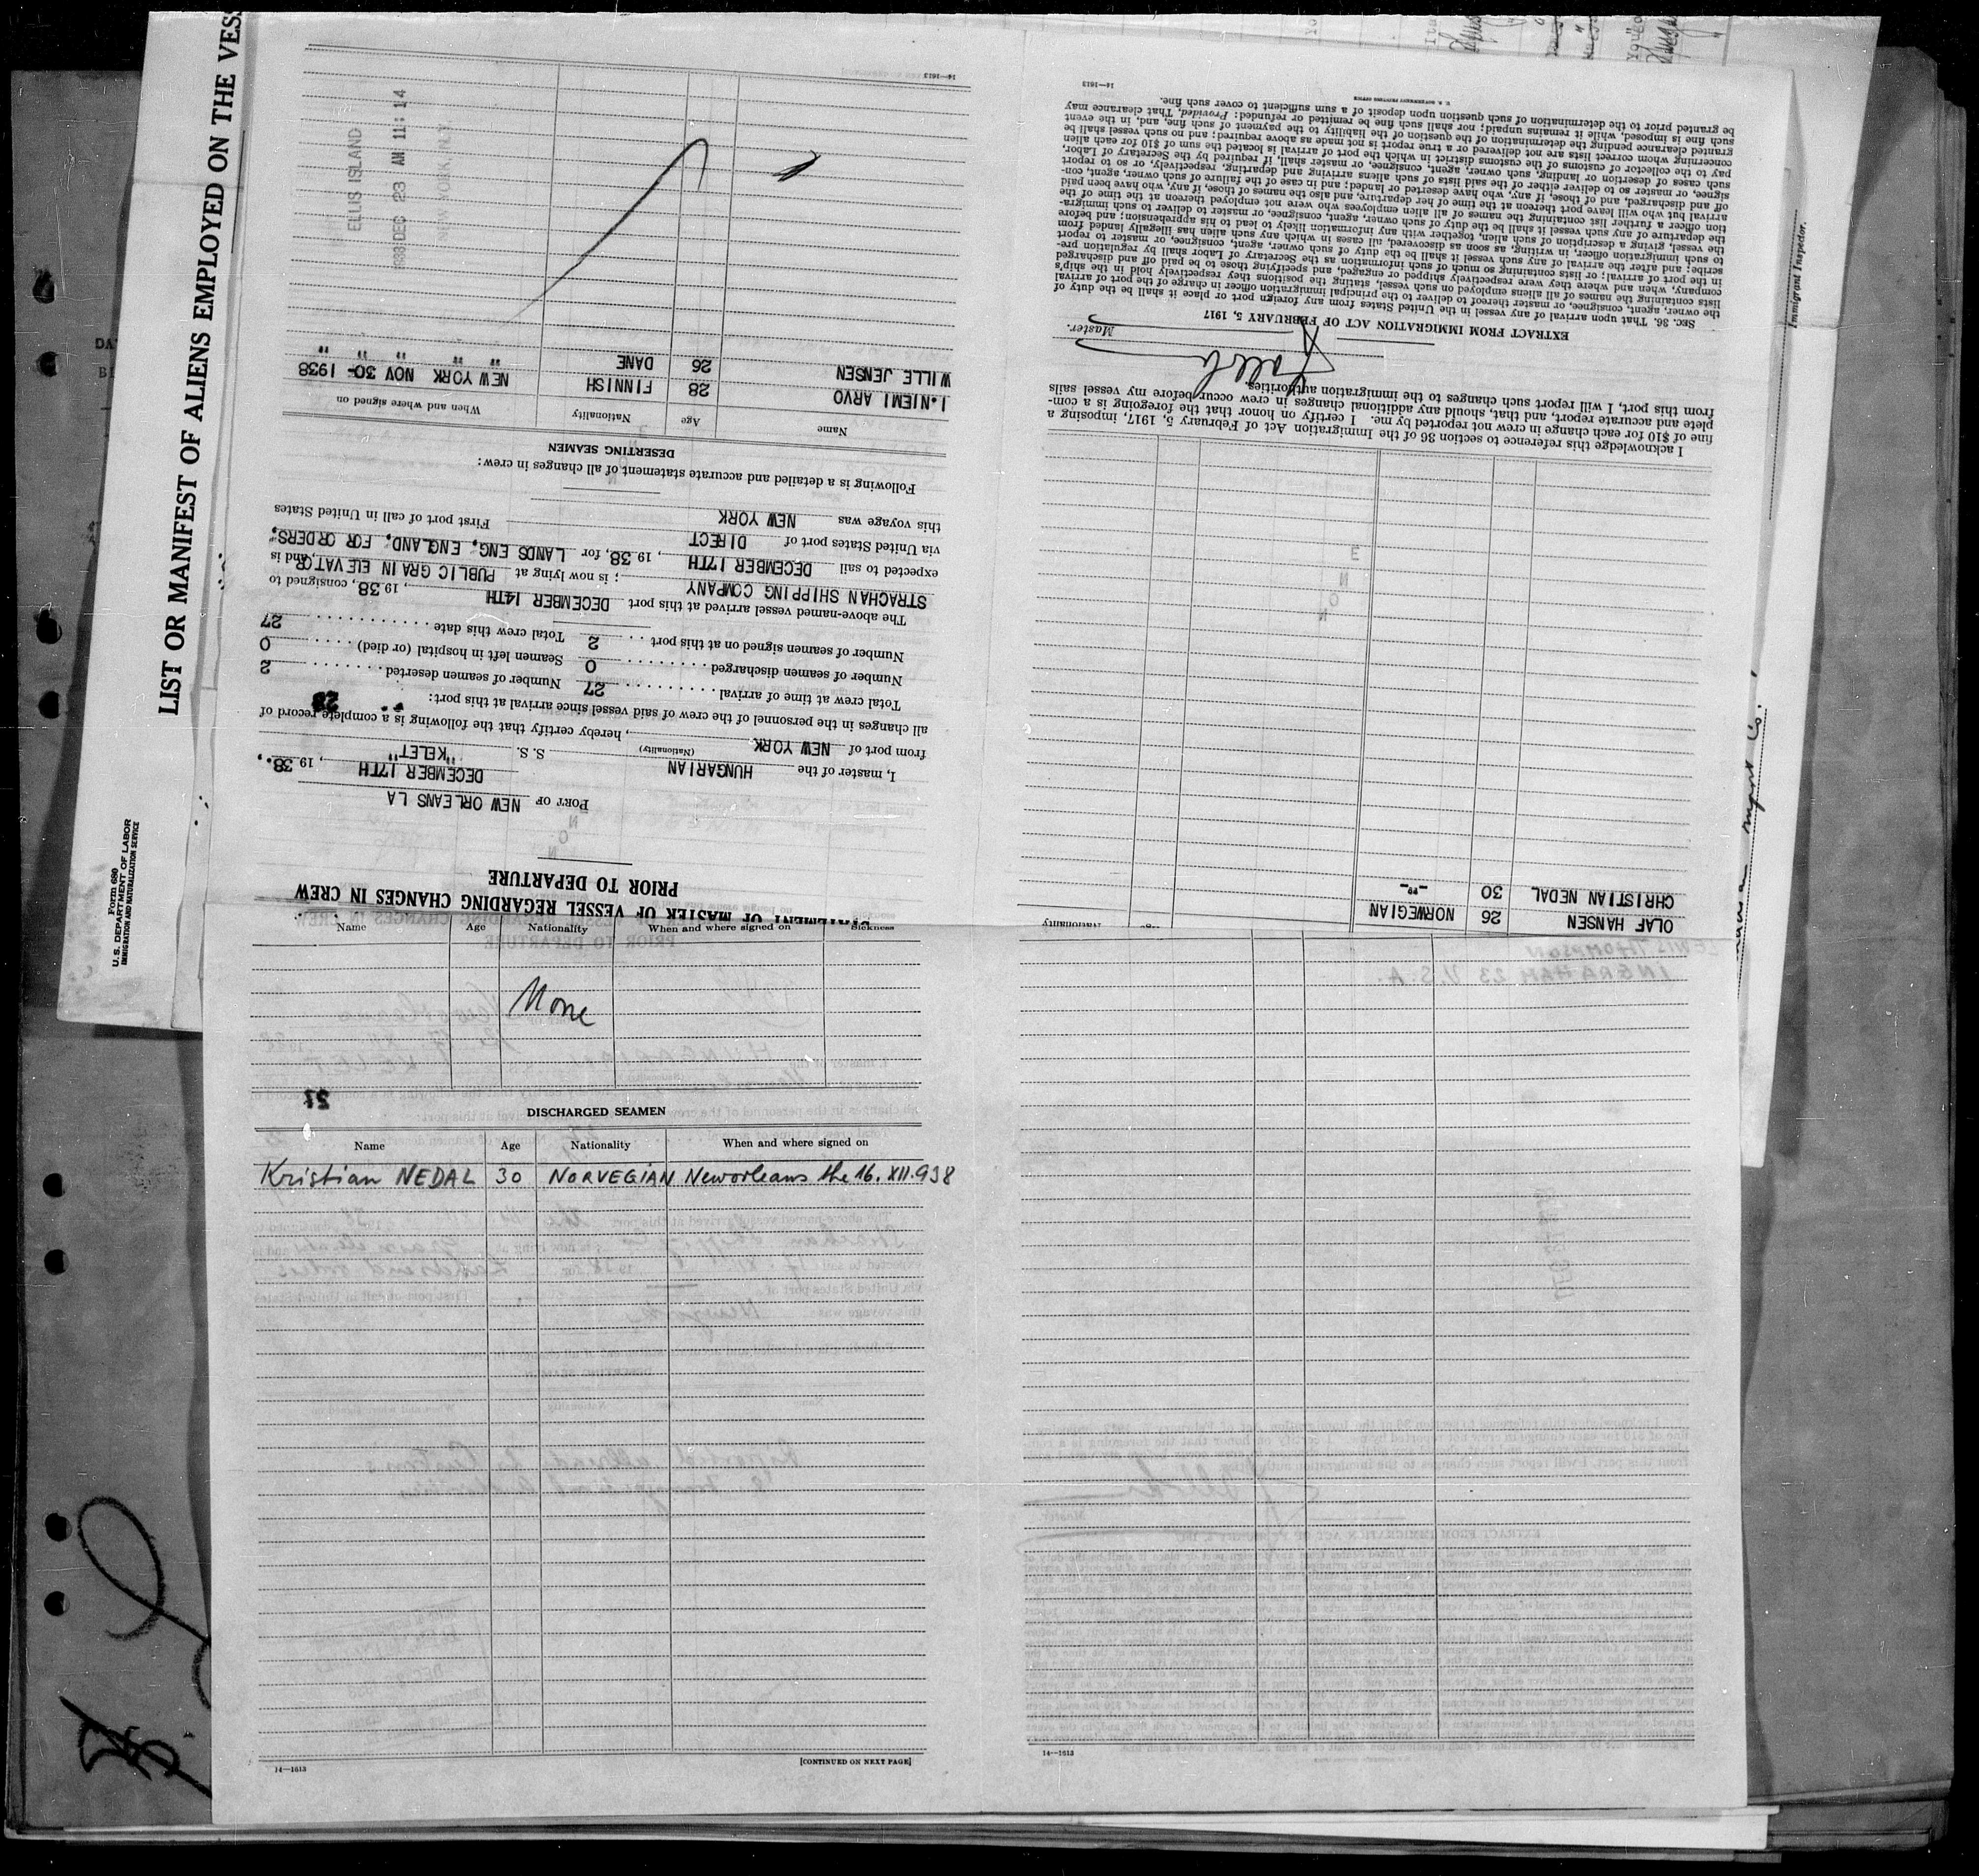 LIST OR MANIFEST OF ALIENS EMPLOYED ON THE VES
Form 680
U.S. DEPARTMENT OF LABOR
IMMIGRATION AND NATURALIZATION SERVICE
STATEMENT OF MASTER OF VESSEL REGARDING CHANGES IN CREW
PRIOR TO DEPARTURE
PORT OF NEW ORLEANS LA
DECEMBER 17TH, 1938.,
I, master of the HUNGARIAN S. S. "KELET"
(Nationality)
from port of NEW YORK, hereby certify that the following is a complete record of
all changes in the personnel of the crew of said vessel since arrival at this port:
Total crew at time of arrival 27 Number of seamen deserted 2
Number of seamen discharged 0 Seamen left in hospital (or died) 0
Number of seamen signed on at this port 2 Total crew this date 27
The above-named vessel arrived at this port DECEMBER 14TH, 1938, consigned to
STRACHAN SHIPPING COMPANY; is now lying at PUBLIC GRAIN ELEVATOR, and is
expected to sail DECEMBER 17TH, 1938, for LANDS ENG, ENGLAND, FOR ORDERS,
via United States port of DIRECT First port of call in United States
this voyage was NEW YORK
Following is a detailed and accurate statement of all changes in crew:
DESERTING SEAMEN
Name Age Nationality When and where signed on
I.NIEMI ARVO 28 FINNISH NEW YORK NOV 30- 1938
WILLE JENSEN 26 DANE " " " "
ELLIS ISLAND
1938 DEC 23 AM 11: 14
NEW YORK, N.Y.
14—1613
OLAF HANSEN 26 NORWEGIAN
CHRISTIAN NEDAL 30 -"-
I acknowledge this reference to section 36 of the Immigration Act of February 5, 1917, imposing a
fine of $10 for each change in crew not reported by me. I certify on honor that the foregoing is a com-
plete and accurate report, and that, should any additional changes in crew occur before my vessel sails
from this port, I will report such changes to the immigration authorities.
Master.
EXTRACT FROM IMMIGRATION ACT OF FEBRUARY 5, 1917
SEC. 36. That upon arrival of any vessel in the United States from any foreign port or place it shall be the duty of
the owner, agent, consignee, or master thereof to deliver to the principal immigration officer in charge of the port of arrival
lists containing the names of all aliens employed on such vessel, stating the positions they respectively hold in the ship's
company, when and where they were respectively shipped or engaged, and specifying those to be paid off and discharged
in the port of arrival; or lists containing so much of such information as the Secretary of Labor shall by regulation pre-
scribe; and after the arrival of any such vessel it shall be the duty of such owner, agent, consignee, or master to report
to such immigration officer, in writing, as soon as discovered, all cases in which any such alien has illegally landed from
the vessel, giving a description of such alien, together with any information likely to lead to his apprehension; and before
the departure of any such vessel it shall be the duty of such owner, agent, consignee, or master to deliver to such immigra-
tion officer a further list containing the names of all alien employees who were not employed thereon at the time of the
arrival but who will leave port thereon at the time of her departure, and also the names of those, if any, who have been paid
off and discharged, and of those, if any, who have deserted or landed; and in case of the failure of such owner, agent, con-
signee, or master so to deliver either of the said lists of such aliens arriving and departing, respectively, or so to report
such cases of desertion or landing, such owner, agent, consignee, or master shall, if required by the Secretary of Labor,
pay to the collector of customs of the customs district in which the port of arrival is located the sum of $10 for each alien
concerning whom correct lists are not delivered or a true report is not made as above required; and no such vessel shall be
granted clearance pending the determination of the question of the liability to the payment of such fine, and, in the event
such fine is imposed, while it remains unpaid; nor shall such fine be remitted or refunded: Provided, That clearance may
be granted prior to the determination of such question upon deposit of a sum sufficient to cover such fine.
U. S. GOVERNMENT PRINTING OFFICE
14—1613
Immigrant Inspector.
Name Age Nationality When and where signed on Sickness
None
DISCHARGED SEAMEN
Name Age Nationality When and where signed on
Kristian NEDAL 30 NORVEGIAN Neworleans the 16. XII.938
14—1613
[CONTINUED ON NEXT PAGE]
14—1613